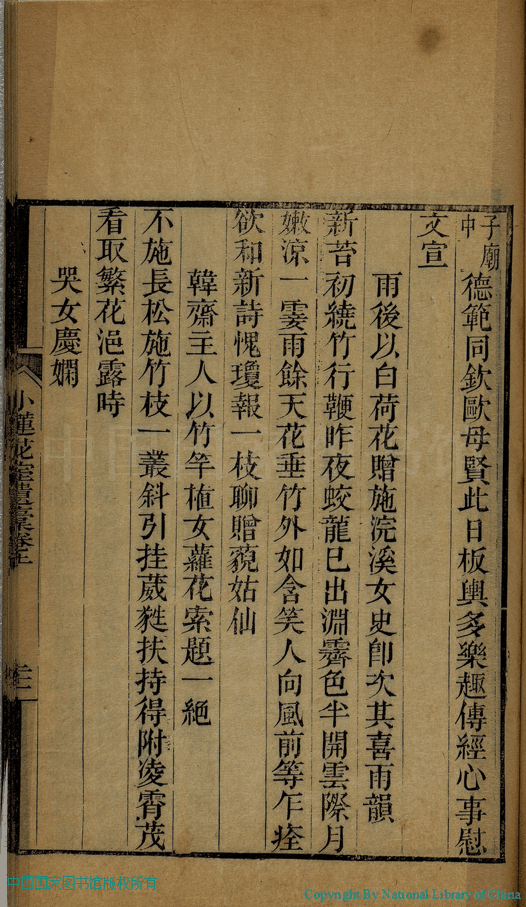 子廟
中
德範同欽歐母賢此日板輿多樂趣傳經心事慰
文宣
雨後以白荷花贈施浣溪女史卽次其喜雨韻
新苔初繞竹行鞭昨夜蛟龍已出淵霽色半開雲際月
嫩涼一霎雨餘天花垂竹外如含笑人向風前等乍痊
欲和新詩愧瓊報一枝聊贈藐姑仙
韓齋主人以竹竿植女蘿花索題一絕
不施長松施竹枝一叢斜引挂葳蕤扶持得附凌霄茂
看取繁花浥露時
哭女慶嫻
小蓮花室遺稾卷上
中国国家图书馆版权所有
Copyright By National Library of China